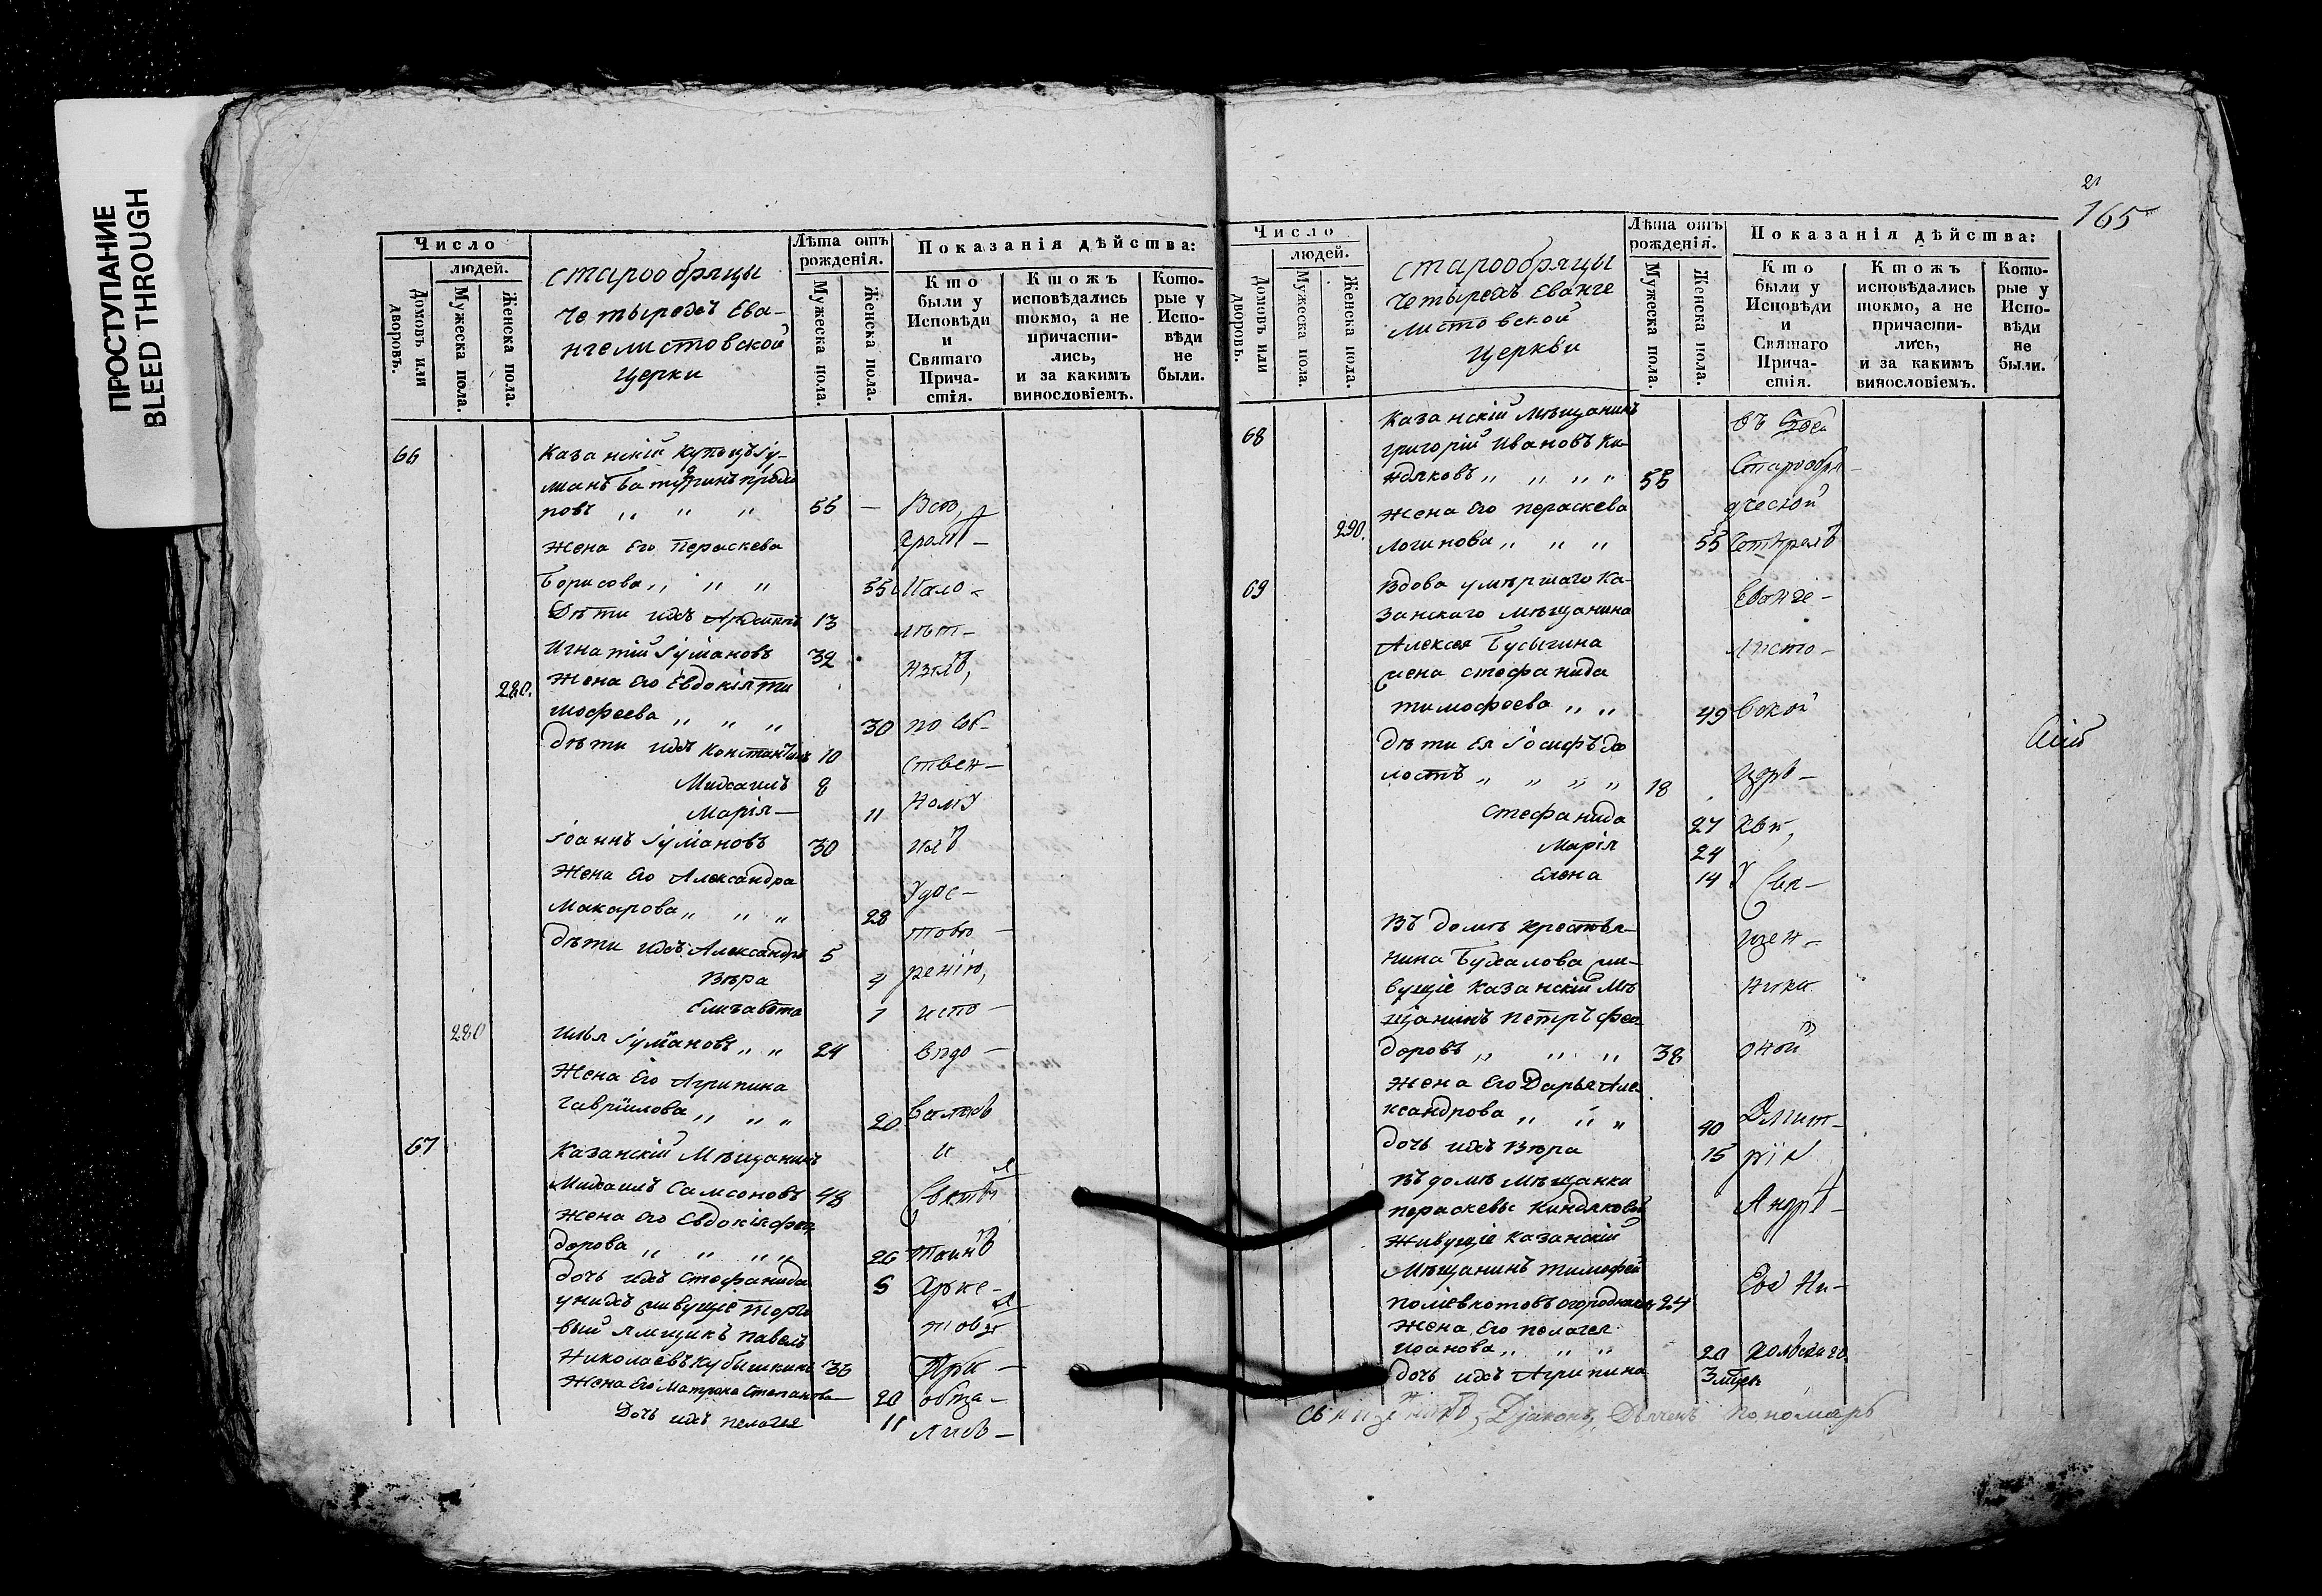 ПРОСТУПАНИЕ
BLEED THROUGH
Число
людей.
Домовъ или дворовъ.
Мужеска пола.
Женска пола.
старообрядцы
четырехъ Ева-
нгелистовской
Церки
Лѣта отъ
рожденія.
Мужеска пола.
Женска пола.
Показанія дѣйства:
Кто
были у
Исповѣди
и
Святаго
Прича-
стія.
Ктожъ
исповѣдались
токмо, а не
причасти-
лись,
и за какимъ
винословіемъ.
Кото-
рые у
Испо-
вѣди
не
были.
66
Казанскій купецъ Iу-
55 —
Жена Его Пераскева
Борисова „ „ „ 55
Дѣти ихъ 13
Игнатій Іуліановъ 32
280.
Жена Его Евдокія Ти
мофеева „ „ „ 30 по соб-
дѣти ихъ Константинъ 10 ствен-
Михаилъ 8
Марія — 11 ному
Іоаннъ Іуліановъ 30 ихъ
Жена Его Александра
Макарова „ „ „ 28 удос-
дѣти ихъ Александръ 5 товѣ-
Вѣра 4 ренію,
Елизавѣта 1 испо-
280
Илья Іуліановъ „ „ 24
Жена Его Агрипина
Гавріилова „ „ „ 20
67
Казанскій Мѣщанинъ и
Михаилъ Самсоновъ 48
Жена Его Евдокія фео
дорова „ „ „ „ 26 Таинъ
дочь ихъ Стефанида 5
у нихъ живущіе торго
вый ямщикъ Павелъ
Николаевъ Кубышкинъ 33 При-
Жена Его Матрона Степанова 20 обща-
Дочь ихъ Пелагея 11 лись
21
165
Число
людей.
Домовъ или дворовъ.
Мужеска пола.
Женска пола.
старообрядцы
четырехъ Еванге
листовской
Церкви
Лѣта отъ
рожденія.
Мужеска пола.
Женска пола.
Показанія дѣйства:
Кто
были у
Исповѣди
и
Святаго
Прича-
стія.
Ктожъ
исповѣдались
токмо, а не
причасти-
лись,
и за какимъ
винословіемъ.
Кото-
рые у
Испо-
вѣди
не
были.
68
Казанскій Мѣщанинъ
григорій Ивановъ Ки-
ндяковъ „ „ „ „ 55 Старообря-
290.
Жена Его Пераскева дческой
Логинова „ „ „ 55 Четырехъ
69
Вдова умѣршаго Ка-
занскаго мѣщанина Еванге-
Алексея Бусыгина листо-
жена Стефанида
тимофеева „ „ 49 вской
дѣти Ея Іосифъ хо
лостъ „ „ „ „ 18 Цер-
Стефанида 27 кви,
Марія 24
Елена 14 у Свя-
Въ домѣ крестья-
нина Бухалова жи- щен-
вущіе Казанскій мѣ ника
щанинъ Петръ фео
доровъ „ „ „ 38 оной
Жена Его Дарья Але
ксандрова „ „ „ 40 Дмит-
дочь ихъ Вѣра 15 рія
въ домѣ мѣщанки
Пераскевы Киндяковой Андре-
Живущіе Казанскій
Мѣщанинъ Тимофей
24
Жена Его Пелагея
Иоанова „ „ „ 20
дочь ихъ Агрипина 3 мѣсец
Священникъ, Дiаконъ, Дьячекъ Пономарь